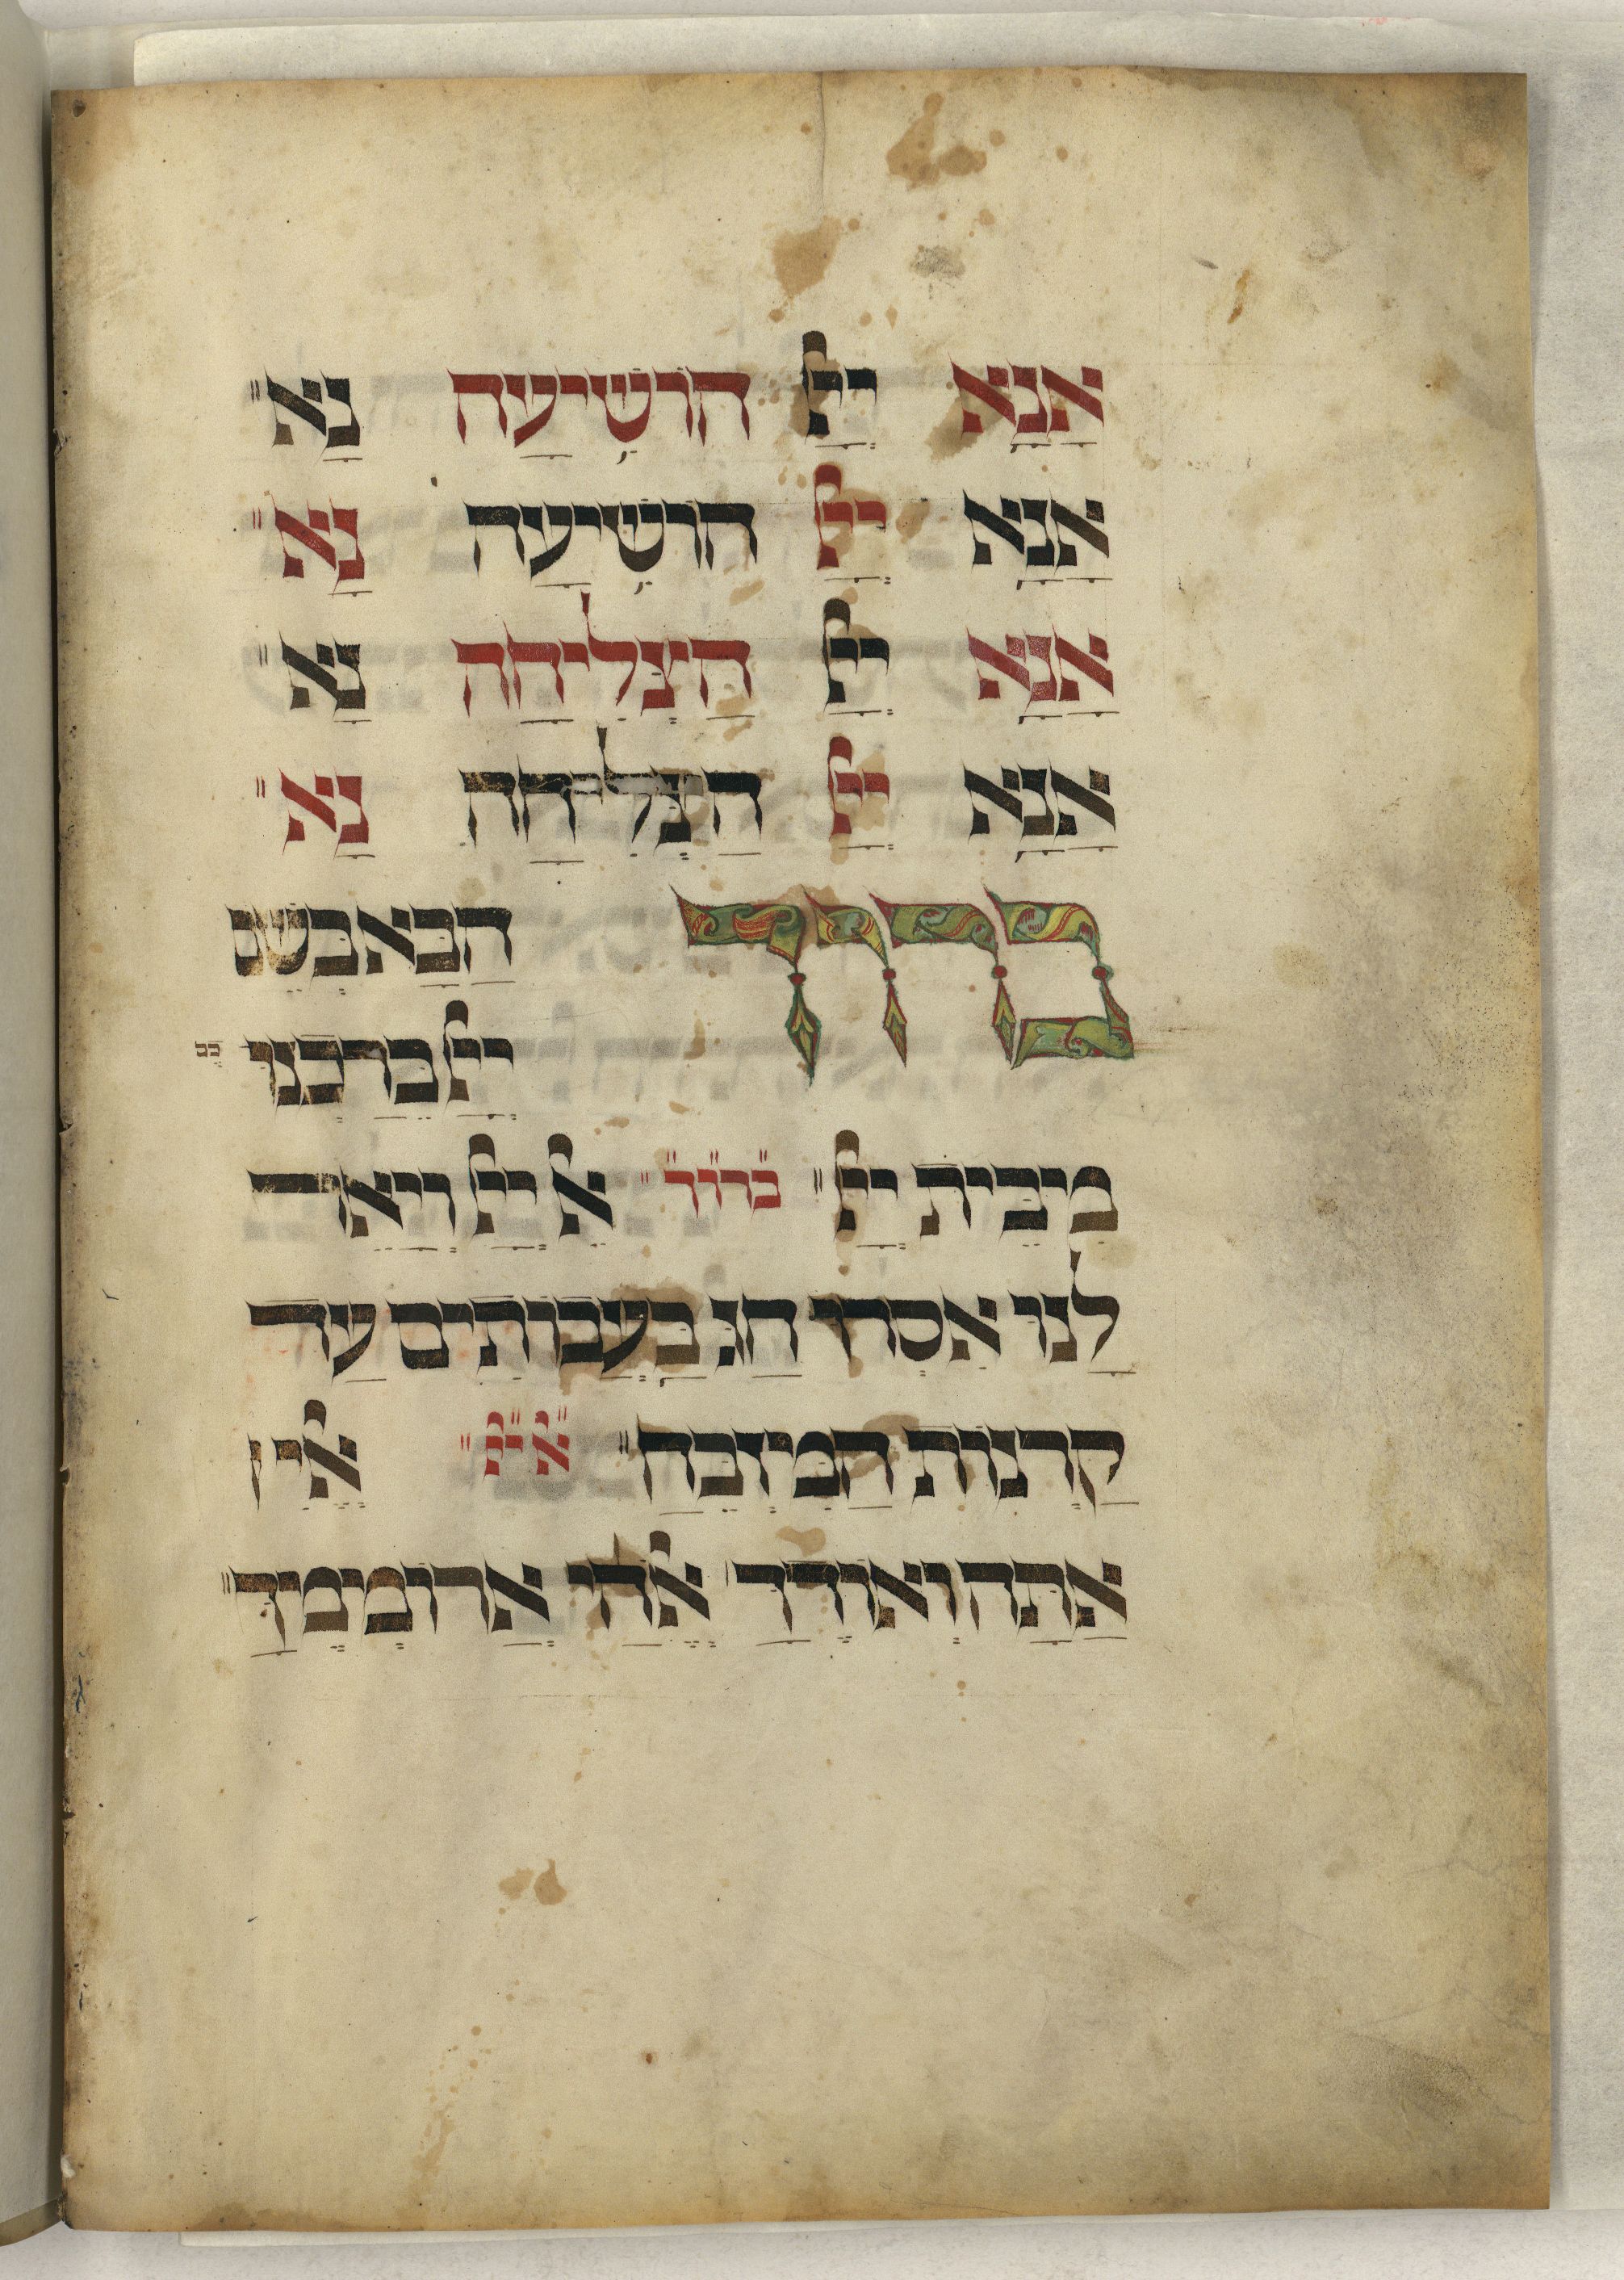 אָנָּא יְיָ הוֹשִׁיעָה נָּא
אָנָּא יְיָ הוֹשִׁיעָה נָּא
אָנָּא יְיָ הַצְלִיחָה נָּא
אָנָּא יְיָ הַצְלִיחָה נָּא
ברוך הַבָּא בְּשֵׁם
יְיָ בֵּרַכְנוּ כֶם
מִיבֵּית יְיָ ברוך אֵל יְיָ וַיָּאֶר
לָנוּ אִסְרוּ חַג בַּעֲבוֹתִים עַד
קַרְנוֹת הַמִּיזְבֵּחַ אל יי אֵלִי
אַתָּה וְאוֹדֶךָּ אֱלֹהַי אֲרוֹמִימֶיךָּ